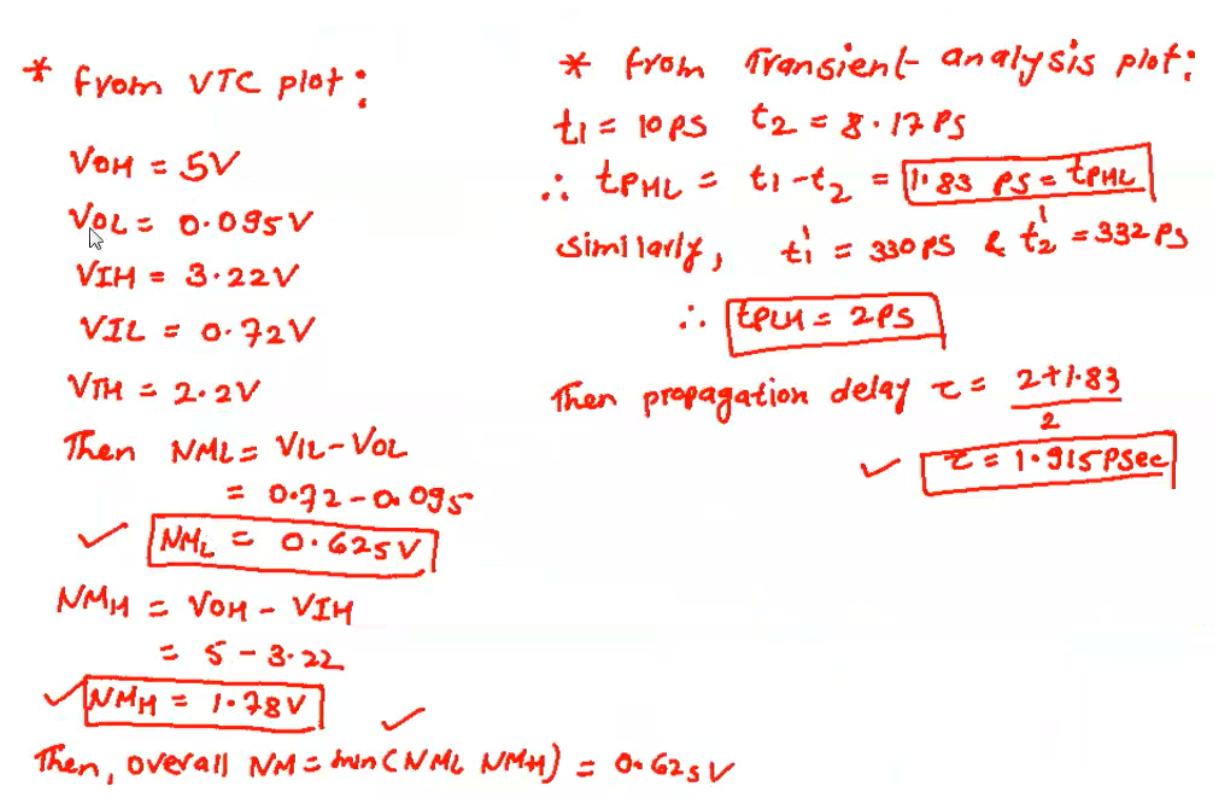 * from VTC plot:
VOH = 5V
VOL = 0.095V
VIH = 3.22V
VIL = 0.72V
VTH = 2.2V
Then NML = VIL-VOL
= 0.72-0.095
✓ NML = 0.625V
NMH = VOH - VIH
= 5 - 3.22
✓ NMH = 1.78V ✓
Then, overall NM = min(NML NMH) = 0.625V
* from Transient analysis plot:
t1 = 10PS t2 = 8.17PS
∴ tPHL = t1-t2 = 1.83 PS = tPHL
Similarly, t1' = 330PS & t2' = 332PS
∴ tPLH = 2PS
Then propagation delay τ = 2+1.83
2
✓ τ = 1.915PSec